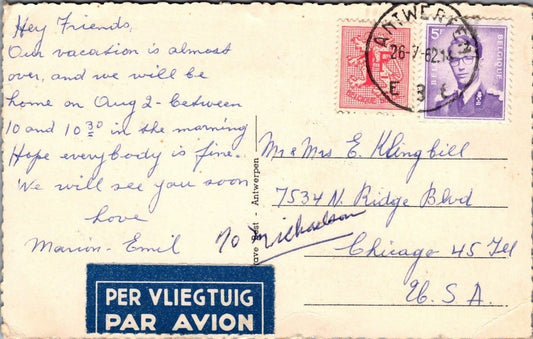 Hey Friends,
Our vacation is almost
over, and we will be
home on Aug 2 - between
10 and 10 30 in the morning
Hope everybody is fine.
We will see you soon
Love
Marion - Emil
ANTWERPEN
26-7-62
E 3 E
5F
BELGIQUE
Mr & Mrs E. Klingbill
7534 N. Ridge Blvd
% Michaelson
Chicago 45 Ill
U.S.A.
- Antwerpen
PER VLIEGTUIG
PAR AVION